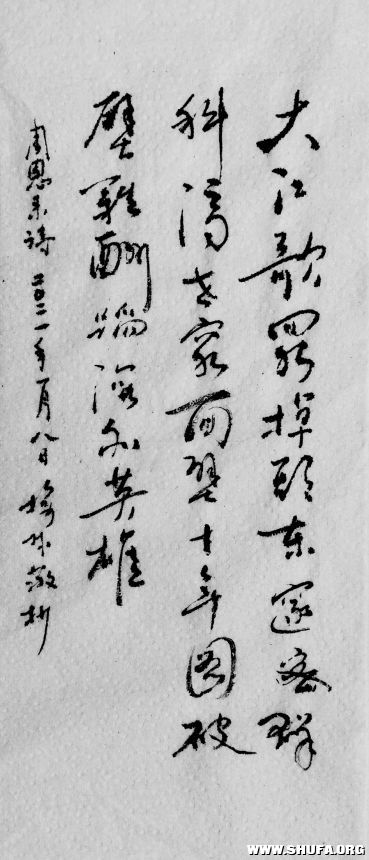 大江歌罷掉頭东邃密群
科濟世窮面壁十年图破
壁難酬蹈海亦英雄
周恩来诗 二〇二一年一月八日 敬抄
WWW.SHUFA.ORG